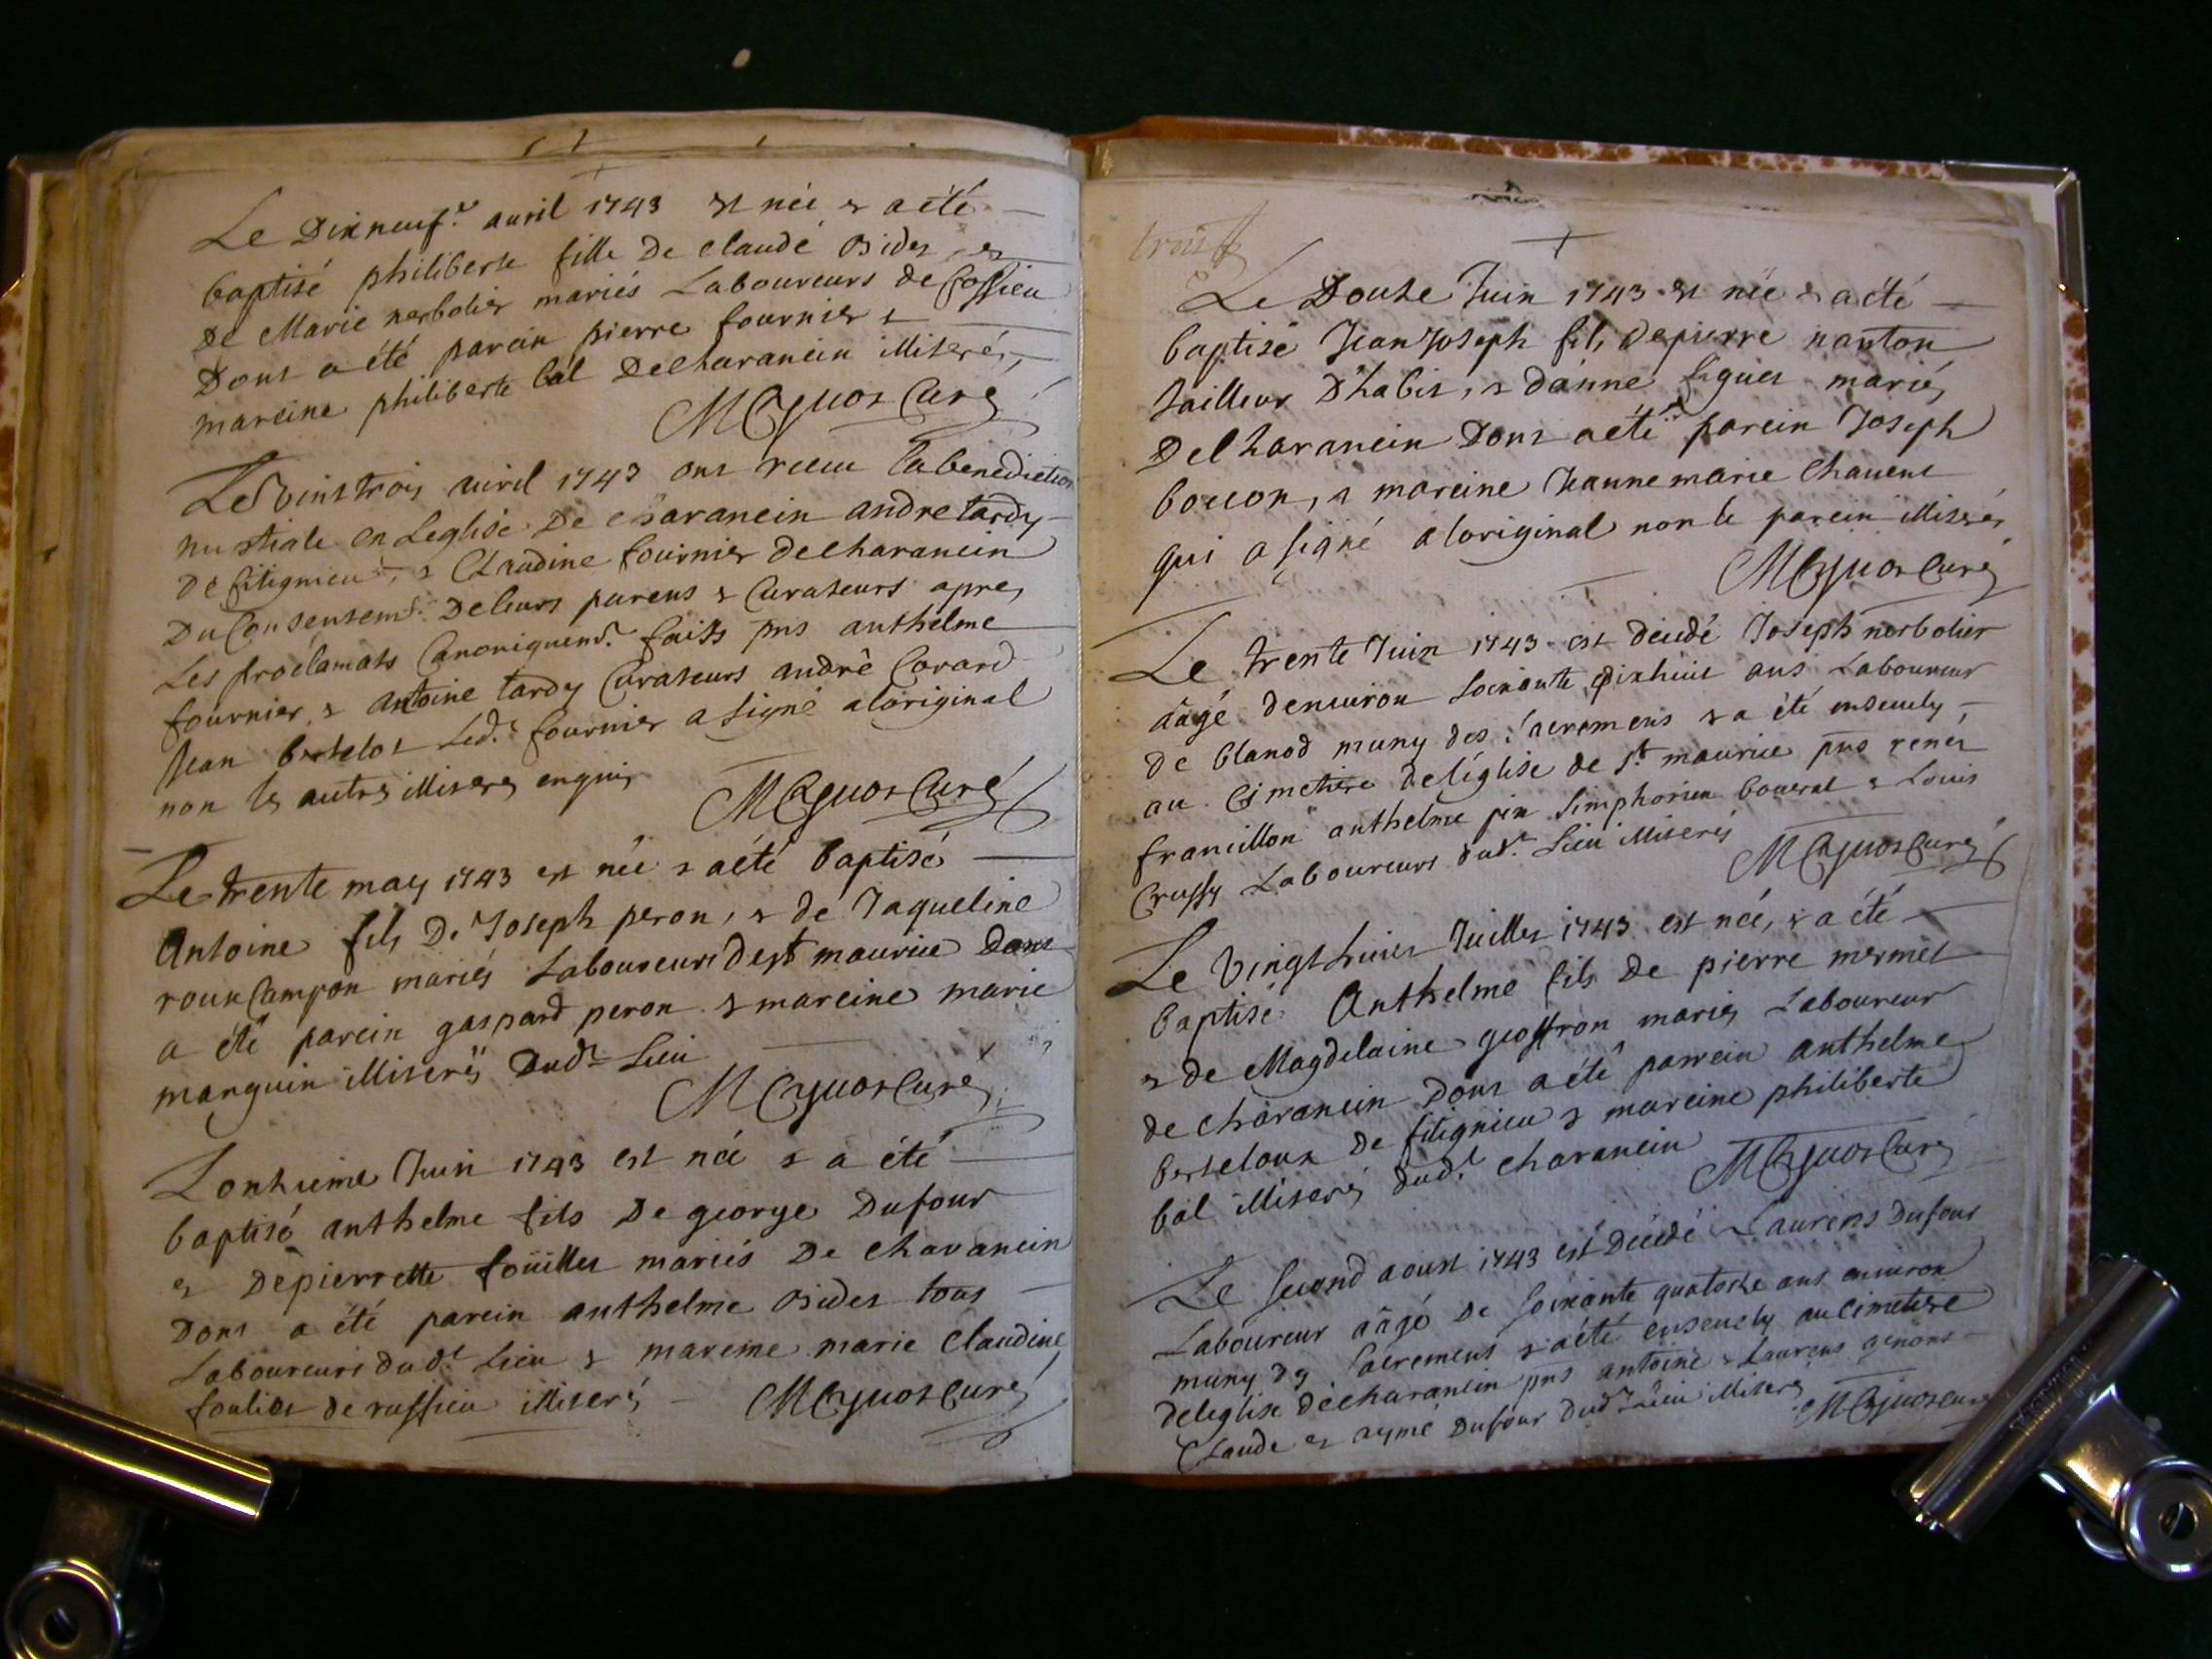 Le Dixneuf.e auril 1743 est née & a été
baptisé philiberte fille De claude Bider et
De Marie nerbolier mariés Laboureurs de Cossieu
Dont a été parein pierre fournier &
mareine philiberte bal Decharancin illiterés,
MCaguoz Curé
Le vint trois avril 1743 ont receu la benediction
nuptiale en Leglise De charancin andre tardy
De fitignieu, & Claudine fournier Decharancin
Du Consentem.t De leurs parens & Curateurs apres
Les proclamats Canoniquem.t faits pns anthelme
fournier, & antoine tardy Curateurs andrê Corard
Jean bertelot Led.t fournier a signé a loriginal
non les autres illiteres enquis
MCaguoz Curé
Le trente may 1743 est née & a été baptisé
Antoine fils De Joseph peron, & de Jaqueline
roux Campon mariés Laboureurs de st maurice Dont
a été parein gaspard peron & mareine marie
manguin illiterés Dud.t Lieu
MCaguoz Curé
Lonzieme Juin 1743 est née & a été
baptisé anthelme fils De george Dufour
et De pierrette foüiller mariés De charancin
Dont a été parein anthelme Bider tous
Laboureurs dud.t Lieu & mareine marie Claudine
foulier de ruffieu illiterés
MCaguoz Curé
trois
Le Douze Juin 1743 est née & a été
baptisé Jean Joseph fils De pierre nanton
tailleur D'habit, & D'anne figuet mariés
De Charancin Dont a été parein Joseph
bouon, & mareine Jeanne marie Chauent
qui a signé a loriginal non le parein illiteré
MCaguoz Curé
Le trente Juin 1743 est decedé Joseph nerbolier
âagé denuiron soixante dixhuit ans Laboureur
De blanod muny des sacremens & a été enseuely
au Cimetiere de léglise de st maurice pns renér
francillon anthelme pin Simphorien boueral & Louis
Crussy Laboureurs dud.t Lieu illiterés
MCaguoz Curé
Le Vingt huict Juillet 1743 est née, & a été
baptisé Anthelme fils De pierre mermet
& de Magdelaine geoffron mariés Laboureur
de charancin Dont a été parrein anthelme
berteloux De fitignieu & mareine philiberte
bal illiterés dud.t charancin
MCaguoz Curé
Le second aoust 1743 est Decedé Laurens Dufour
Laboureur âagé De soixante quatorze ans enuiron
muny des sacremens & a été enseuely au Cimetiere
De leglise De charancin pns antoine & Laurens genons
Claude et aymé Dufour Dud.t Lieu illiterés
MCaguoz Curé